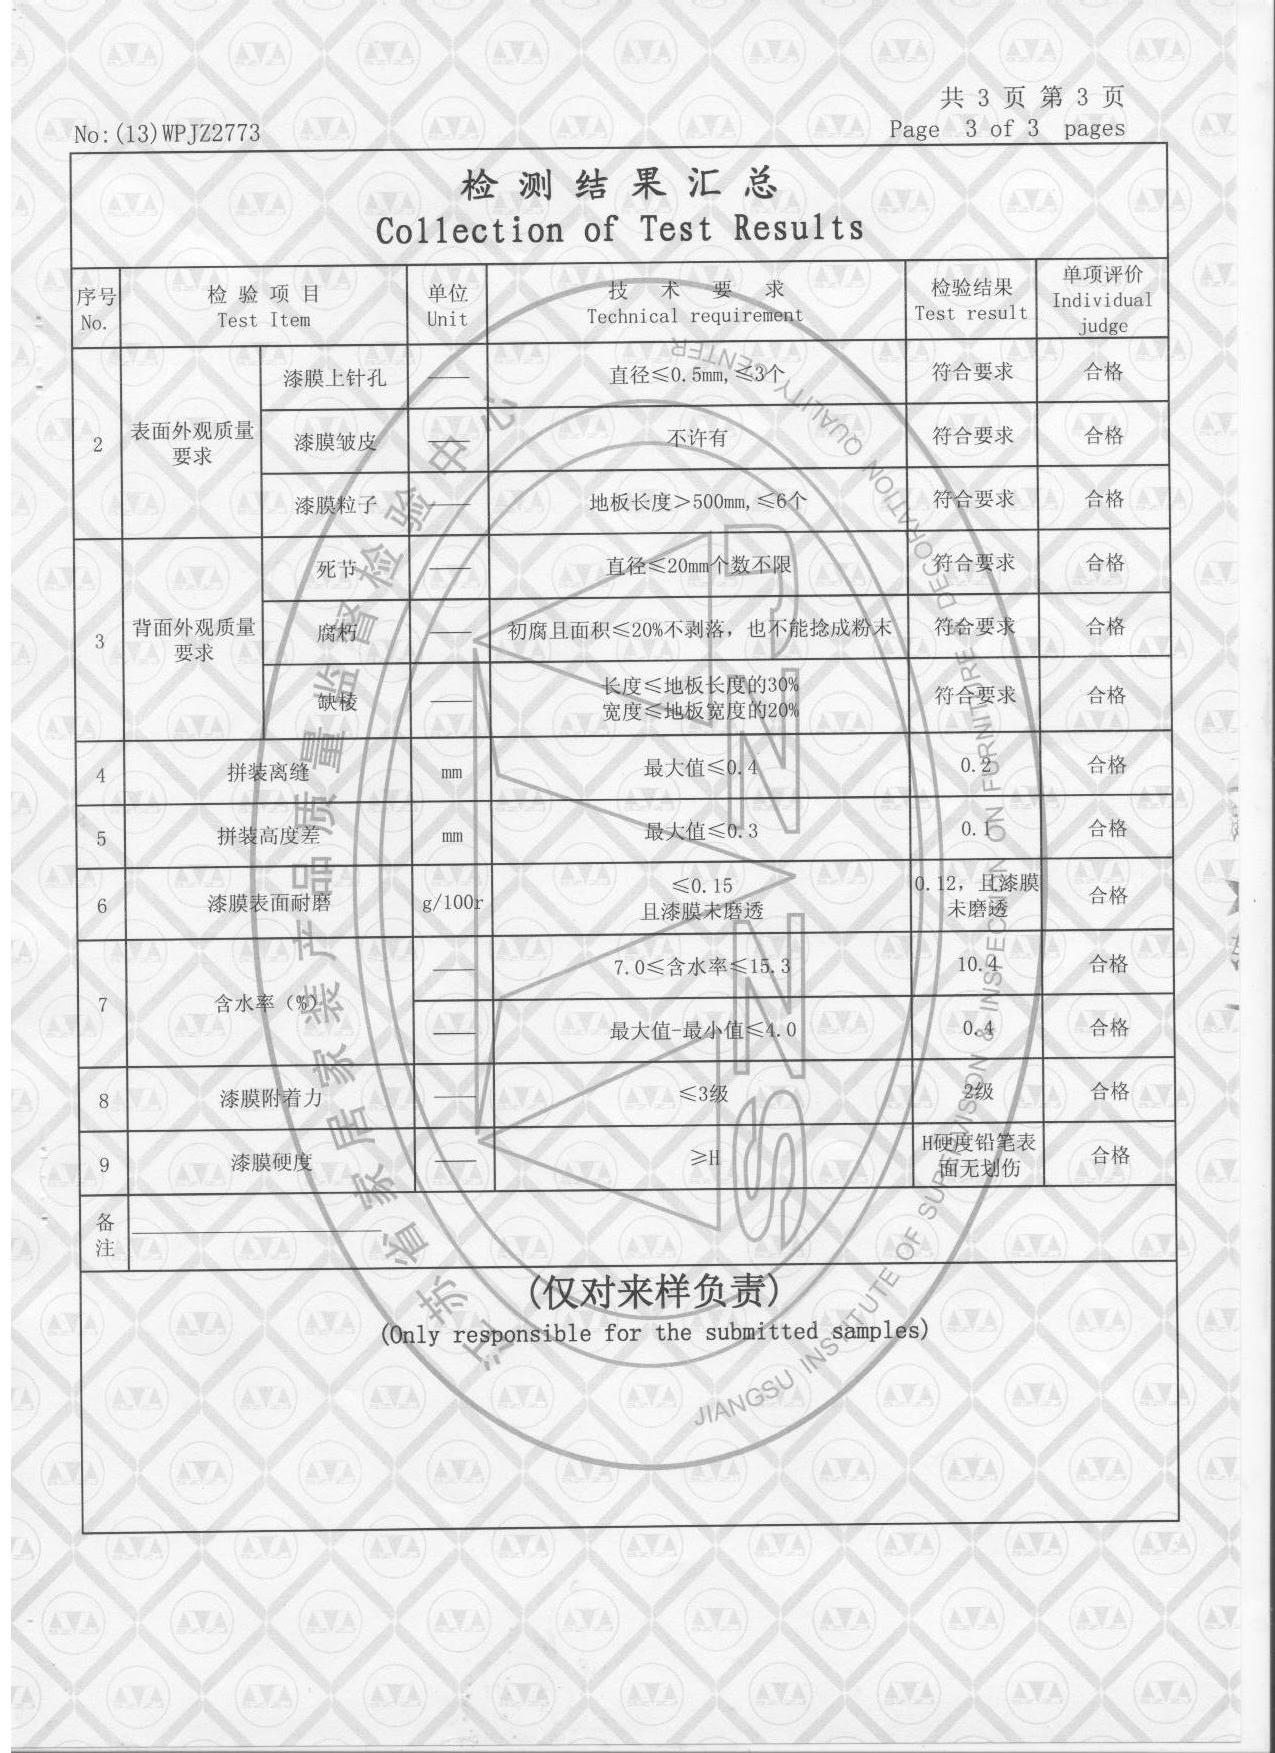 共 3 页 第 3 页
No:(13)WPJZ2773
Page 3 of 3 pages
检测结果汇总
Collection of Test Results
序号 检验项目 单位 技术要求 检验结果 单项评价
No. Test Item Unit Technical requirement Test result Individual judge
2 表面外观质量要求 漆膜上针孔 —— 直径≤0.5mm,≤3个 符合要求 合格
漆膜皱皮 —— 不许有 符合要求 合格
漆膜粒子 —— 地板长度>500mm,≤6个 符合要求 合格
3 背面外观质量要求 死节 —— 直径≤20mm个数不限 符合要求 合格
腐朽 —— 初腐且面积≤20%不剥落，也不能捻成粉末 符合要求 合格
缺棱 —— 长度≤地板长度的30% 宽度≤地板宽度的20% 符合要求 合格
4 拼装离缝 mm 最大值≤0.4 0.2 合格
5 拼装高度差 mm 最大值≤0.3 0.1 合格
6 漆膜表面耐磨 g/100r ≤0.15 且漆膜未磨透 0.12，且漆膜未磨透 合格
7 含水率（%） —— 7.0≤含水率≤15.3 10.4 合格
—— 最大值-最小值≤4.0 0.4 合格
8 漆膜附着力 —— ≤3级 2级 合格
9 漆膜硬度 —— ≥H H硬度铅笔表面无划伤 合格
备注
(仅对来样负责)
(Only responsible for the submitted samples)
江苏省家居家装产品质量监督检验中心
JIANGSU INSTITUTE OF SUPERVISION & INSPECTION ON FURNITURE & DECORATION QUALITY CENTER